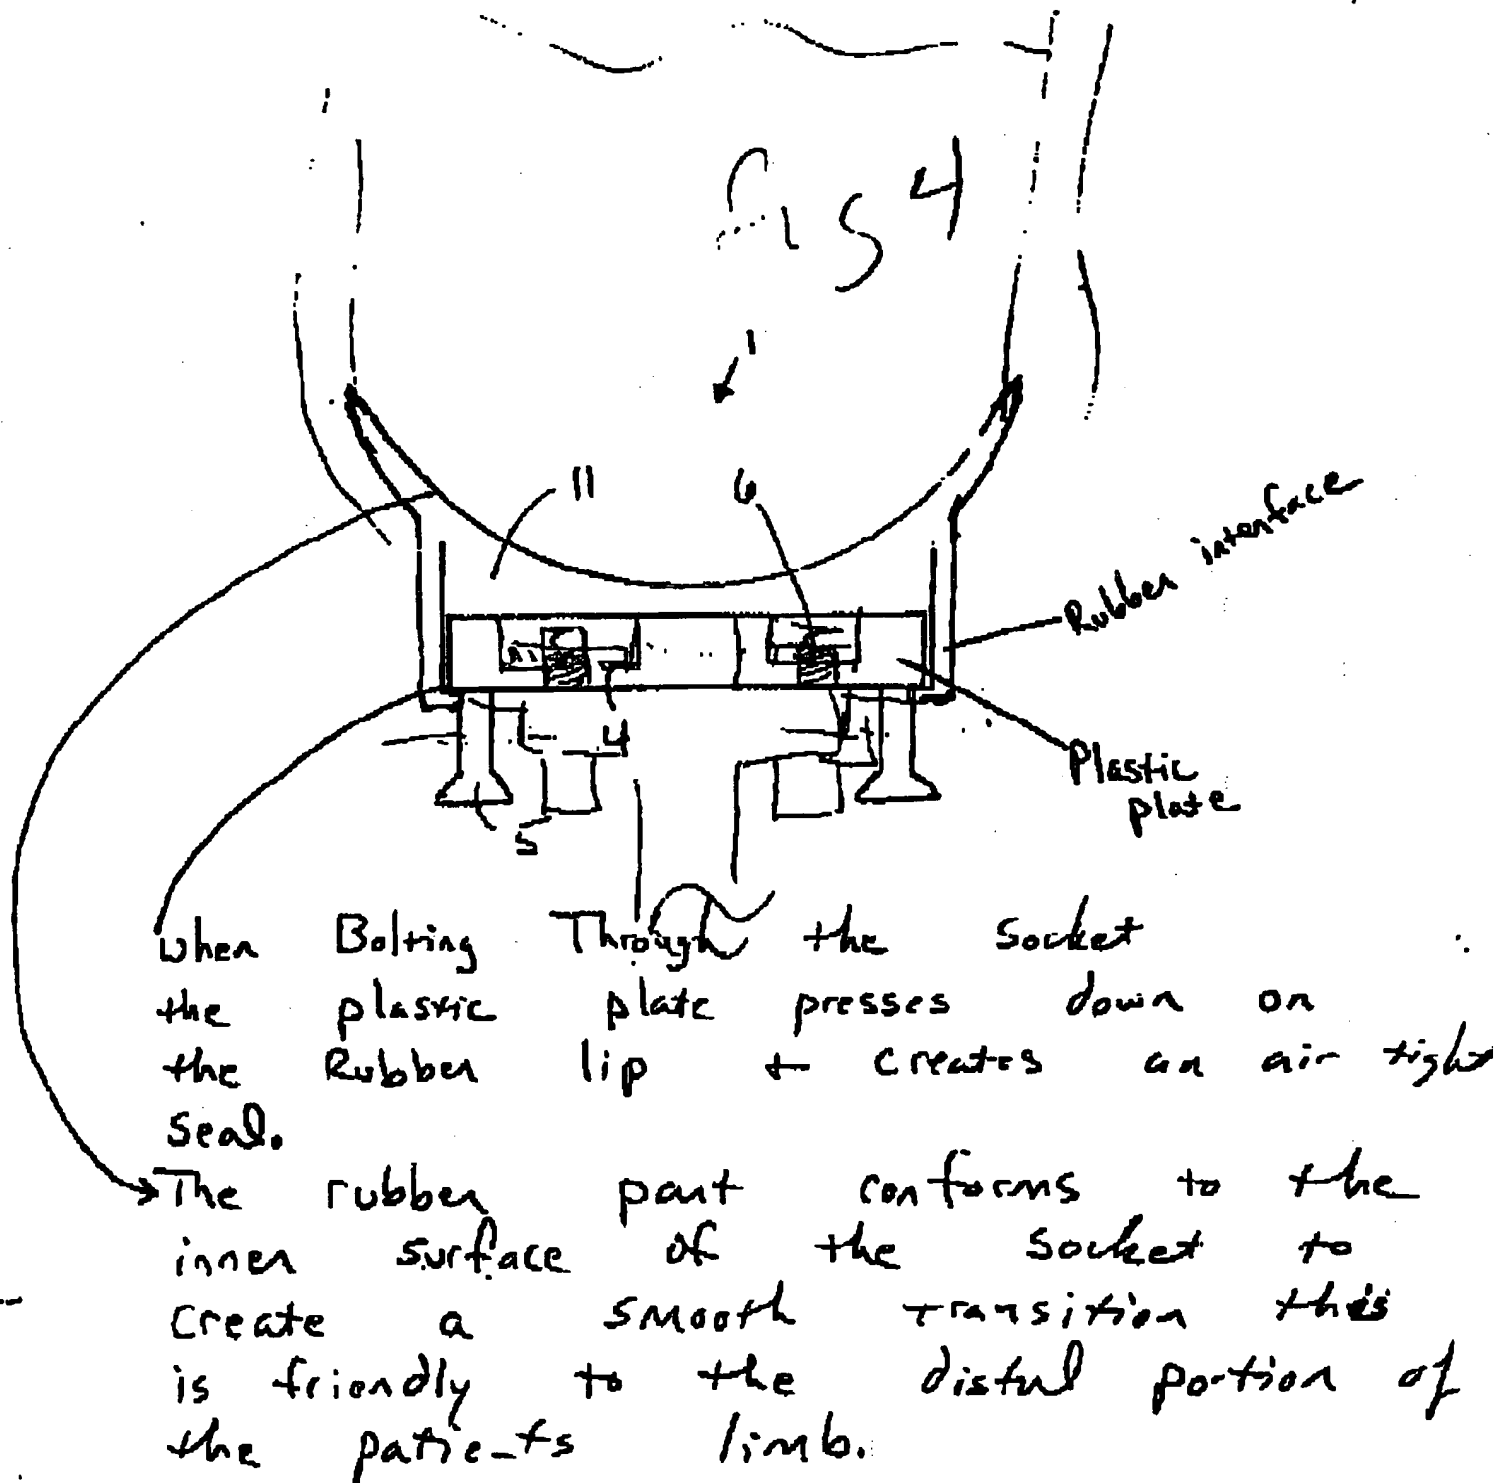 Fig 4
1
11
6
Rubber interface
4
Plastic
plate
5
when Bolting Through the Socket
the plastic plate presses down on
the Rubber lip + creates an air tight
Seal.
The rubber part conforms to the
inner surface of the Socket to
Create a smooth transition this
is friendly to the distal portion of
the patients limb.